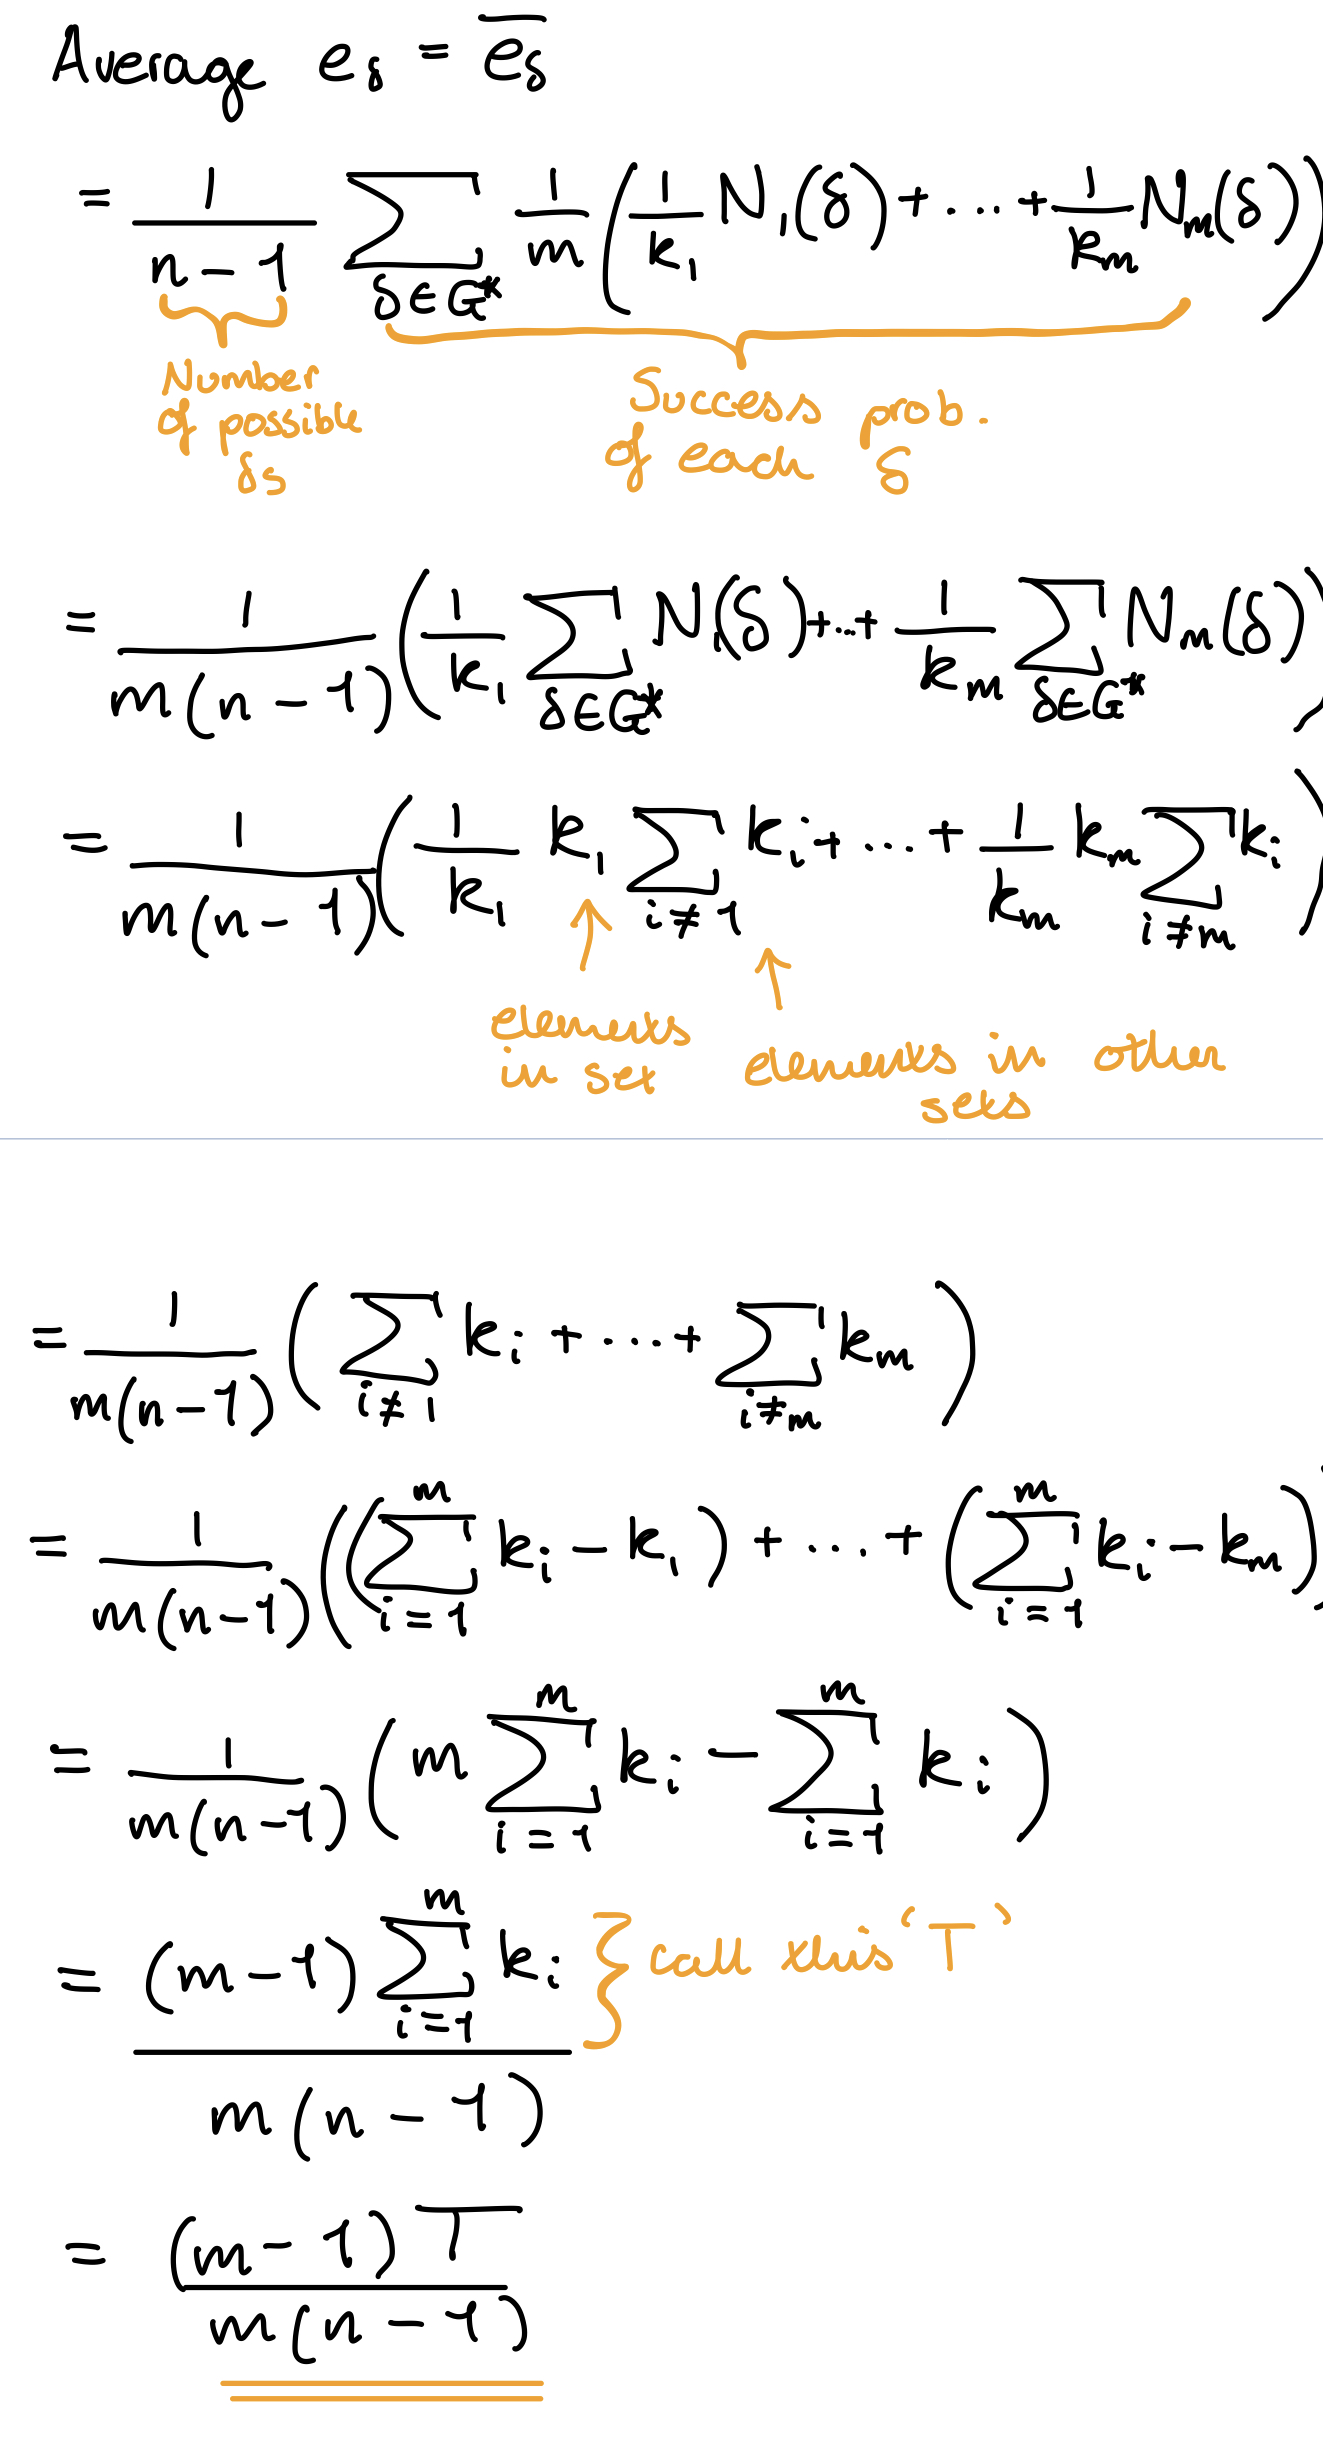 Average e_δ = \overline{e_δ}
= \frac{1}{n-1} \sum_{δ∈G*} \frac{1}{m} ( \frac{1}{k_1} N_1(δ) + ... + \frac{1}{k_m} N_m(δ) )
Number of possible δs
Success prob. of each δ
= \frac{1}{m(n-1)} ( \frac{1}{k_1} \sum_{δ∈G*} N_1(δ) + ... + \frac{1}{k_m} \sum_{δ∈G*} N_m(δ) )
= \frac{1}{m(n-1)} ( \frac{1}{k_1} k_1 \sum_{i≠1} k_i + ... + \frac{1}{k_m} k_m \sum_{i≠m} k_i )
elements in set
elements in other sets
= \frac{1}{m(n-1)} ( \sum_{i≠1} k_i + ... + \sum_{i≠m} k_m )
= \frac{1}{m(n-1)} ( ( \sum_{i=1}^{m} k_i - k_1 ) + ... + ( \sum_{i=1}^{m} k_i - k_m ) )
= \frac{1}{m(n-1)} ( m \sum_{i=1}^{m} k_i - \sum_{i=1}^{m} k_i )
= \frac{(m-1) \sum_{i=1}^{m} k_i}{m(n-1)} } call this 'T'
= \frac{(m-1)T}{m(n-1)}